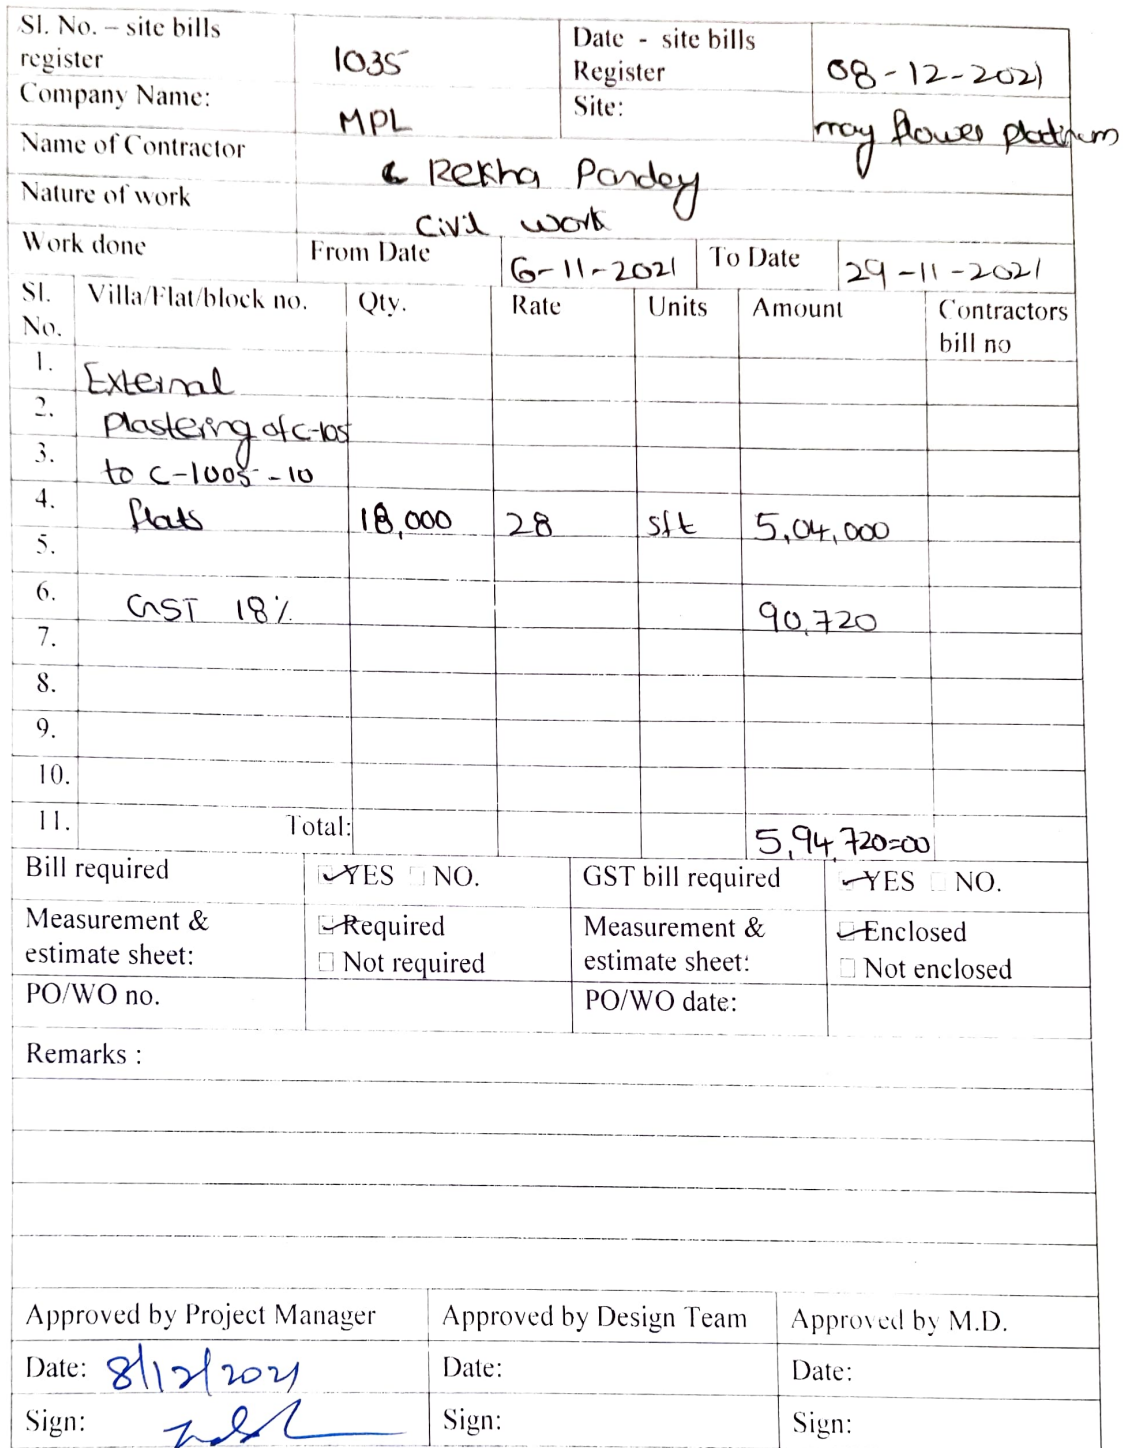 Sl. No. – site bills register 1035 Date - site bills Register 08-12-2021
Company Name: MPL Site: may flower platinum
Name of Contractor Rekha Pandey
Nature of work Civil work
Work done From Date 6-11-2021 To Date 29-11-2021
Sl. No. Villa/Flat/block no. Qty. Rate Units Amount Contractors bill no
1. External
2. Plastering of C-105
3. to C-1005 - 10
4. flats 18,000 28 sft 5,04,000
5.
6. GST 18% 90,720
7.
8.
9.
10.
11. Total: 5,94,720=00
Bill required YES NO. GST bill required YES NO.
Measurement & estimate sheet: Required Measurement & estimate sheet: Enclosed
Not required Not enclosed
PO/WO no. PO/WO date:
Remarks :
Approved by Project Manager Approved by Design Team Approved by M.D.
Date: 8/12/2021 Date: Date:
Sign: Sign: Sign: